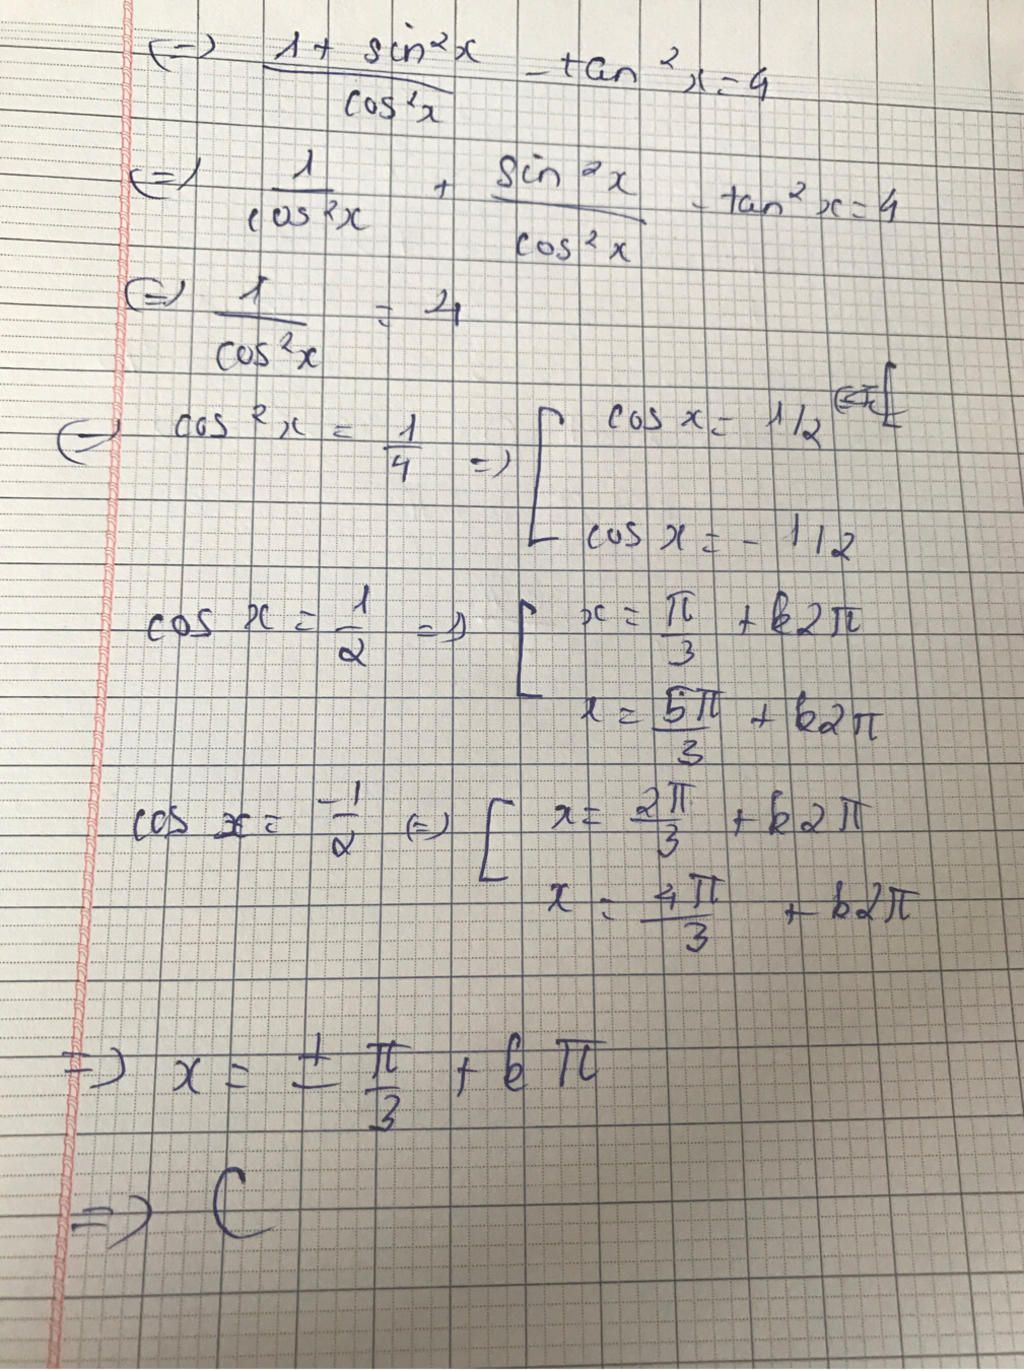 (=) (1 + sin²x)/(cos²x) - tan²x = 4
(=) 1/(cos²x) + (sin²x)/(cos²x) - tan²x = 4
(=) 1/(cos²x) = 4
(=) cos²x = 1/4 =) [ cos x = 1/2
cos x = - 1/2
cos x = 1/2 =) [ x = π/3 + k2π
x = 5π/3 + k2π
cos x = -1/2 (=) [ x = 2π/3 + k2π
x = 4π/3 + k2π
=) x = ± π/3 + kπ
=) C